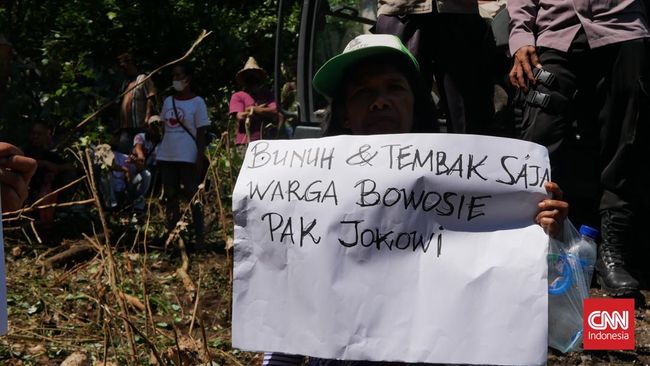 BUNUH & TEMBAK SAJA
WARGA BOWOSIE
PAK JOKOWI
CNN
Indonesia